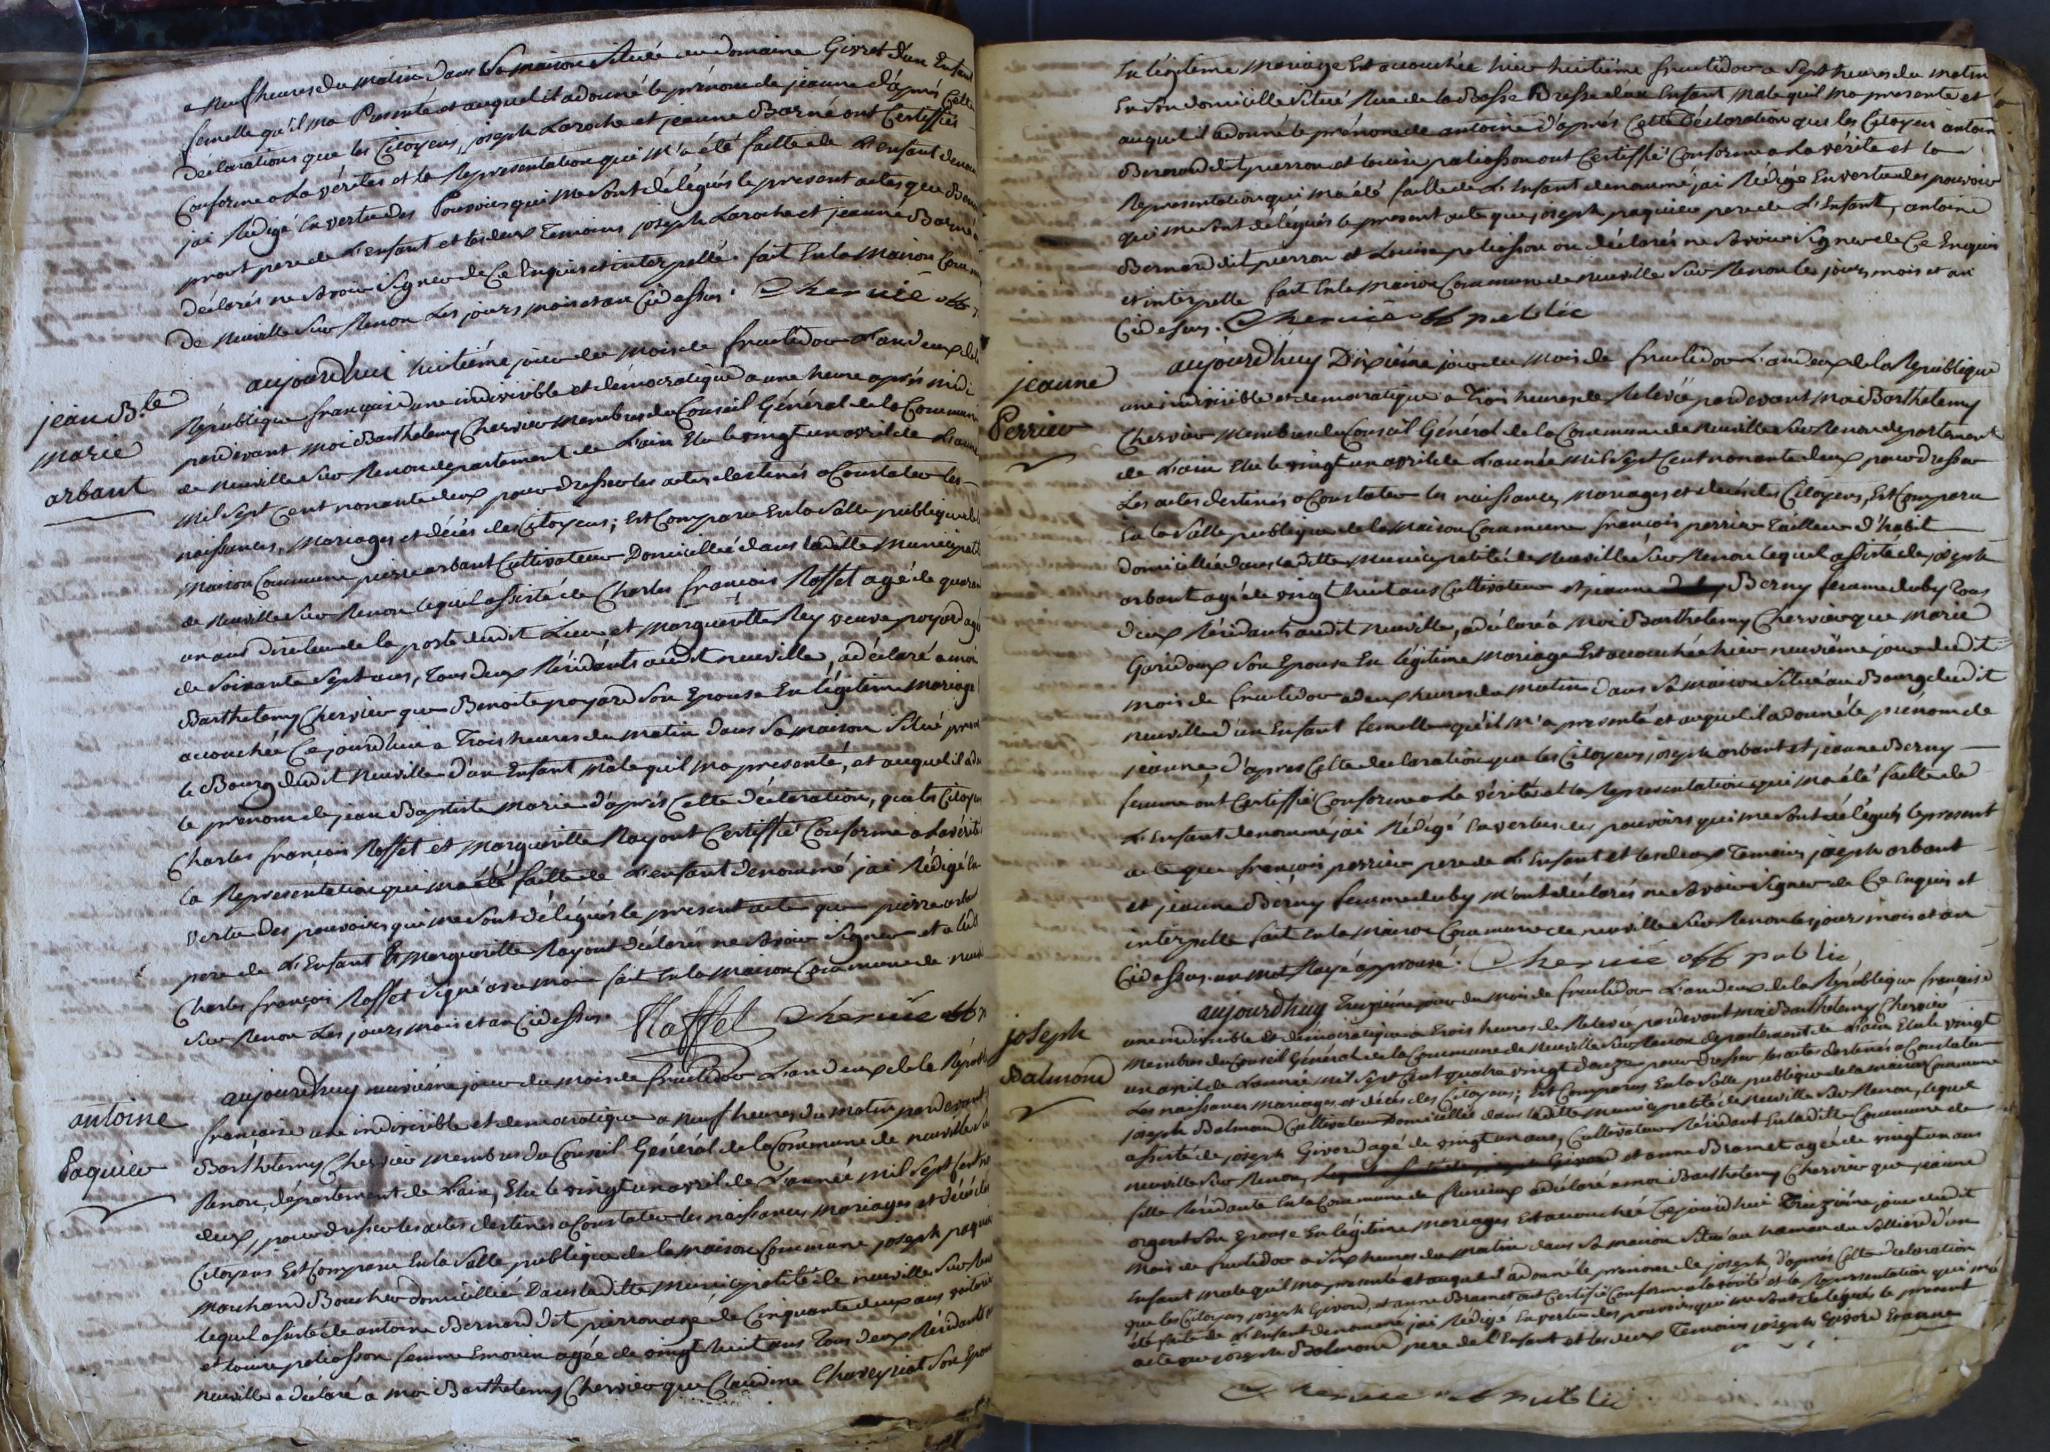 a neuf heures du matin dans sa maison située au domaine Givret d'un Enfant
femelle qu'il ma Presenté et auquel il a donné le prénom de jeanne d'après Cette
déclarations que les Citoyens, joseph Laroche et jeanne Barné ont Certiffiés
Conforme a La vérités et la Représentation qui m'a été faitte de L'enfant denom
jai Rédigé En vertu des Pouvoirs qui me sont délégués le present actes que Benoit
pere de L'enfant et les deux Temoins joseph Laroche et jeanne Barné
déclarés ne Savoir Signer de Ce Enquis et interpellé. fait En la Maison Comm
de Neuville Sur Renon Les jours, mois et an Cidessus. Chervié off p
jean B.te
marie
arbant
aujourd'hui huitiéme jour du mois de fructidor L'an deux de la
République française une indivisible et démocratique a une heure après midi
pardevant moi Barthelemy Chervier Membre du Conseil Général de la Commune
de Neuville Sur Renon département de L'ain Elu le vingt un avril de L'année
Mil Sept Cent nonante deux pour dresser les actes destinés a Constater les
naissances, Mariages et décés des Citoyens; Est Comparu En la Salle publique de la
Maison Commune pierre arbant Cultivateur Domicillié dans laditte Municipalité
de Neuville Sur Renon lequel assisté de Charles françois Roffet agé de quaran
un ans directeur de la poste dudit Lieu, et Marguerite Rey veuve poyard agé
de Soixante Sept ans, Tous deux Résidants audit neuville, a déclaré a moi
Barthelemy Chervier que Benoite poyard Son Epouse En légitime Mariage
accouchée Ce jourd'hui a Trois heures du matin dans Sa maison Situé
le Bourg dudit Neuville d'un Enfant Male quil ma presenté, et auquel il a do
le prenom de jean Baptiste Marie d'après Cette déclaration, que les Citoyens
Charles françois Roffet et Marguerite Ray ont Certiffié Conforme a La vérité
la Représentation qui ma été faitte de L'enfant denommé jai Rédigé En
vertu des pouvoirs qui me Sont délégués le present acte que pierre arbant
pere de L'Enfant Et Marguerite Ray ont déclarés ne Savoir Signer et a Led
Charles françois Roffet Signé avec moi fait En la Maison Commune de Neuv
Sur Renon Les jours Mois et an Cidessus.
Roffet Chervié off p
antoine
Paquier
aujourd'huy neuviéme jour du mois de fructidor L'an deux de la Répub
francaise une indivisible et democratique a Neuf heures du matin pardevant
Barthelemy Chervier Membre du Conseil Général de la Commune de neuville Su
Renon, département de Lain, Elu le vingt un avril de L'année mil Sept Cent no
deux, pour dresser les actes destinés a Constater les naissances Mariages et décés des
Citoyens Est Comparu En la Salle publique de la maison Commune joseph paquier
Marchand Boucher domicillié Dans laditte Municipalité de neuville Sur Ren
lequel assisté de antoine Bernard dit pierron agé de Cinquante deux ans
et louise poliosson femme agée de vingt huit ans Tous deux Résidant
neuville a déclaré a moi Barthelemy Chervier que Claudine Chaveyriat Son Epou
En légitime Mariage Est accouchée hier huitiéme fructidor a Sept heures du matin
En Son domicille Situé Rue de la Basse Bresse d'un Enfant Male quil ma presenté et
auquel il a donné le prénom de antoine d'après Cette Déclaration que les Citoyens antoine
Bernard dit pierron et louise poliosson ont Certiffié Conforme a La vérité et la
Representation qui ma été faitte de L'Enfant denommé jai Rédigé En vertu des pouvoirs
qui me Sont délégués le present acte que joseph paquier pere de L'Enfant, antoine
Bernard dit pierron et Louise poliosson on déclarés ne Savoir Signer de Ce Enquis
et interpellé fait En la Maison Commune de Neuville Sur Renon les jours, mois et an
Cidessus. Chervié off public
jeanne
Perrier
aujourd'huy Dixiéme jour du mois de fructidor L'an deux de la République
une indivisible et democratique a Trois heures de Relevée pardevant Moi Barthelemy
Chervier Membre du Conseil Général de la Commune de Neuville Sur Renon département
de L'ain Elu le vingt un avril de L'année Mil Sept Cent nonante deux pour dresser
Les actes destinés a Constater les naissances, Mariages et décés des Citoyens, Est Comparu
En la Salle publique de la Maison Commune françois perrier Tailleur d'habit
domicillié dans laditte Municipalité de Neuville Sur Renon lequel assisté de joseph
arbant agé de vingt huit ans Cultivateur et jeanne Berny femme duby Tous
deux Résidants audit Neuville, a déclaré a Moi Barthelemy Chervier que Marie
Son Epouse En légitime Mariage Est accouchée hier neuviéme jour dudit
mois de fructidor a deux heures du Matin dans Sa Maison Situé au Bourg dudit
neuville d'un Enfant femelle qu'il m'a presenté et auquel il a donné le prénom de
jeanne, d'après Cette declaration que les Citoyens joseph arbant et jeanne Berny
femme ont Certiffié Conforme a La vérité et la Representation qui ma été faitte de
L'Enfant denommé jai Rédigé En vertu des pouvoirs qui me Sont délégués le present
acte que françois perrier pere de L'Enfant et les deux Temoins joseph arbant
et jeanne Berny femme duby M'ont déclarés ne Savoir Signer de Ce Enquis et
interpellé fait En la Maison Commune de neuville Sur Renon les jours mois et an
Cidessus. un Mot Rayé approuvé. Chervié off public
joseph
Balmond
aujourd'huy Treiziéme jour du Mois de fructidor L'an deux de la République française
une indivisible et démocratique a Trois heures de Relevée pardevant moi Barthelemy Chervier
Membre du Conseil Général de la Commune de Neuville Sur Renon département de L'ain Elu le vingt
un avril de L'année Mil Sept Cent quatre vingt douze pour Dresser les actes destinés a Constater
Les naissances Mariages et décés des Citoyens; Est Comparu En la Salle publique de la maison Commune
joseph Balmond Cultivateur Domicillié dans laditte Municipalité de Neuville Sur Renon, lequel
assisté de joseph Givord agé de vingt un ans, Cultivateur Résidant En laditte Commune de
neuville Sur Renon, Givord et anne Bramet agée de vingt un ans
fille Résidante En la Commune de fleurieux a déclaré a moi Barthelemy Chervier que jeanne
argent Son Epouse En légitime Mariages Est accouchée Ce jourd'hui Treiziéme jour dudit
Mois de fructidor a Six heures du Matin dans Sa maison Situé au hameau du d'un
Enfant male qu'il ma presenté et auquel il a donné le prénom de joseph, d'après Cette declaration
que les Citoyens joseph Givord, et anne Bramet ont Certiffié Conforme a la vérité et la Représentation qui ma
été faite de L'Enfant denommé jai Rédigé En vertu des pouvoirs qui me Sont délégués le present
acte que joseph Balmond pere de L'Enfant et les deux Temoins joseph Givord Et anne
Chervié off public